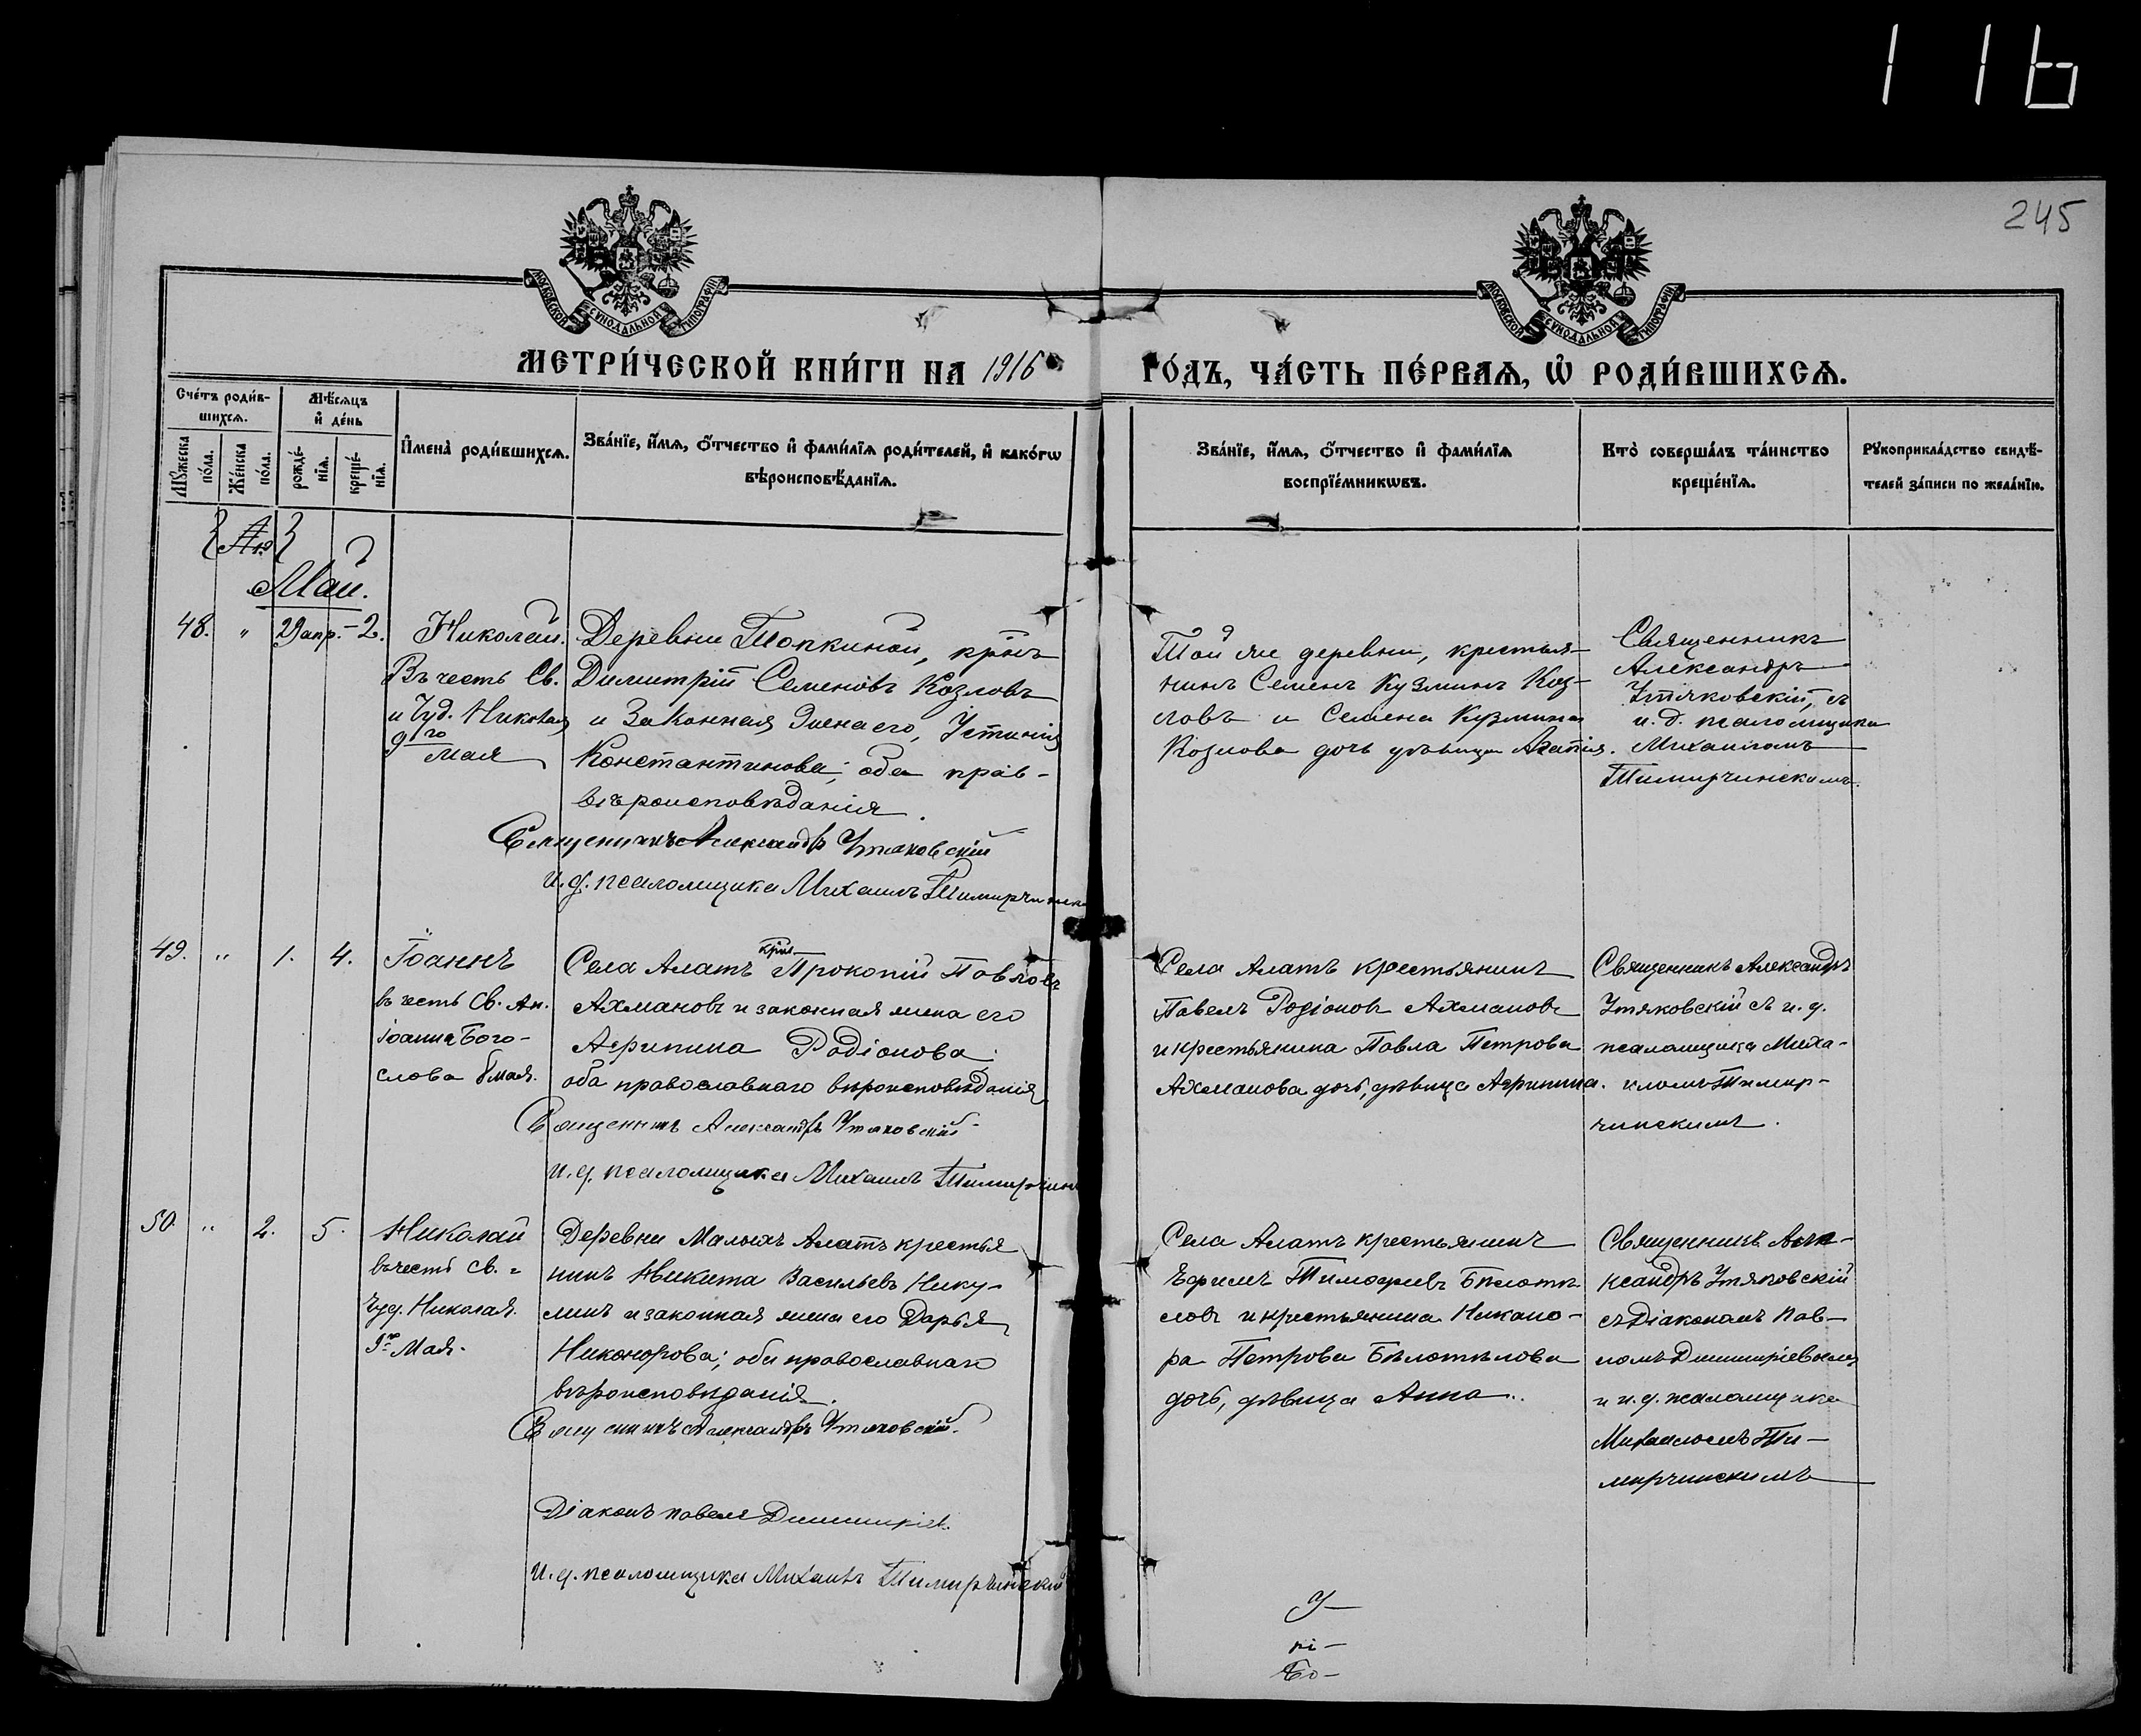 116
245
МОСКОВСКОЙ СѴНОДАЛЬНОЙ ТИПОГРАФІИ
МОСКОВСКОЙ СѴНОДАЛЬНОЙ ТИПОГРАФІИ
МЕТРИ́ЧЕСКОЙ КНИ́ГИ НА 1916
ГО́ДЪ, ЧА́СТЬ ПЕ́РВАѦ, Ѡ҆ РОДИ́ВШИХСѦ.
Сче́тъ роди́в-
шихсѧ.
Мꙋ́жеска
по́ла.
Же́нска
по́ла.
Мѣ́сѧцъ
и҆ де́нь
рожде́-
нїѧ.
креще́-
нїѧ.
И҆мена̀ роди́вшихсѧ.
Зва́нїе, и҆́мѧ, ѻ҆́тчество и҆ фами́лїѧ роди́телей, и҆ како́гѡ
вѣроисповѣ́данїѧ.
Зва́нїе, и҆́мѧ, ѻ҆́тчество и҆ фами́лїѧ
воспрїе́мникѡвъ.
Кто̀ соверша́лъ та́инство
креще́нїѧ.
Рꙋкоприкла́дство свидѣ́-
телей за́писи по жела́нїю.
Май.
48. " 29 апр.- 2.
Николай.
Въ честь Св.
и Чуд. Николая
9го
мая
Деревни Топкиной, крнъ
Димитрій Семеновъ Козловъ
и законная жена его, Устинія
Константинова; оба прав-
вѣроисповѣданія.
Священникъ Александръ Утяковскій
и.д. псаломщика Михаилъ Тимирчинск
Той же деревни, крестья-
нинъ Семенъ Кузминъ Коз-
ловъ и Семена Кузмина
Козлова дочь дѣвица Агапія.
Священникъ
Александръ
Утяковскій, съ
и.д. псаломщика
Михаиломъ
Тимирчинскимъ.
49. " 1. 4.
Іоаннъ
въ честь Св. Ап.
Іоанна Бого-
слова 8 мая.
крнъ
Села Алатъ Прокопій Павловъ
Ахмановъ и законная жена его
Агрипина Родіонова;
оба православнаго вѣроисповѣданія
Священникъ Александръ Утяковскій
и.д. псаломщика Михаилъ Тимирчин
Села Алатъ крестьянинъ
Павелъ Родіоновъ Ахмановъ
и крестьянина Павла Петрова
Ахманова дочь, дѣвица Агрипина.
Священникъ Александръ
Утяковскій съ и.д.
псаломщика Миха-
иломъ Тимир-
чинскимъ.
50. " 2. 5.
Николай
въ честь св.
Чуд. Николая.
9го Мая.
Деревни Малыхъ Алатъ крестья
нинъ Никита Васильевъ Нику-
линъ и законная жена его Дарья
Никонорова; оба православнаго
вѣроисповѣданія.
Священникъ Александръ Утяковскій.
Діаконъ Павелъ Димитріев.
И.д. псаломщика Михаилъ Тимирчинскій
Села Алатъ крестьянинъ
Ефимъ Тимофеевъ Бѣлотѣ
ловъ и крестьянина Никано-
ра Петрова Бѣлотѣлова
дочь, дѣвица Анна.
Священникъ Але-
ксандръ Утяковскій
съ Діакономъ Пав-
ломъ Димитріевымъ
и и.д. псаломщика
Михаиломъ Ти-
мирчинскимъ
У-
рі-
Бо-